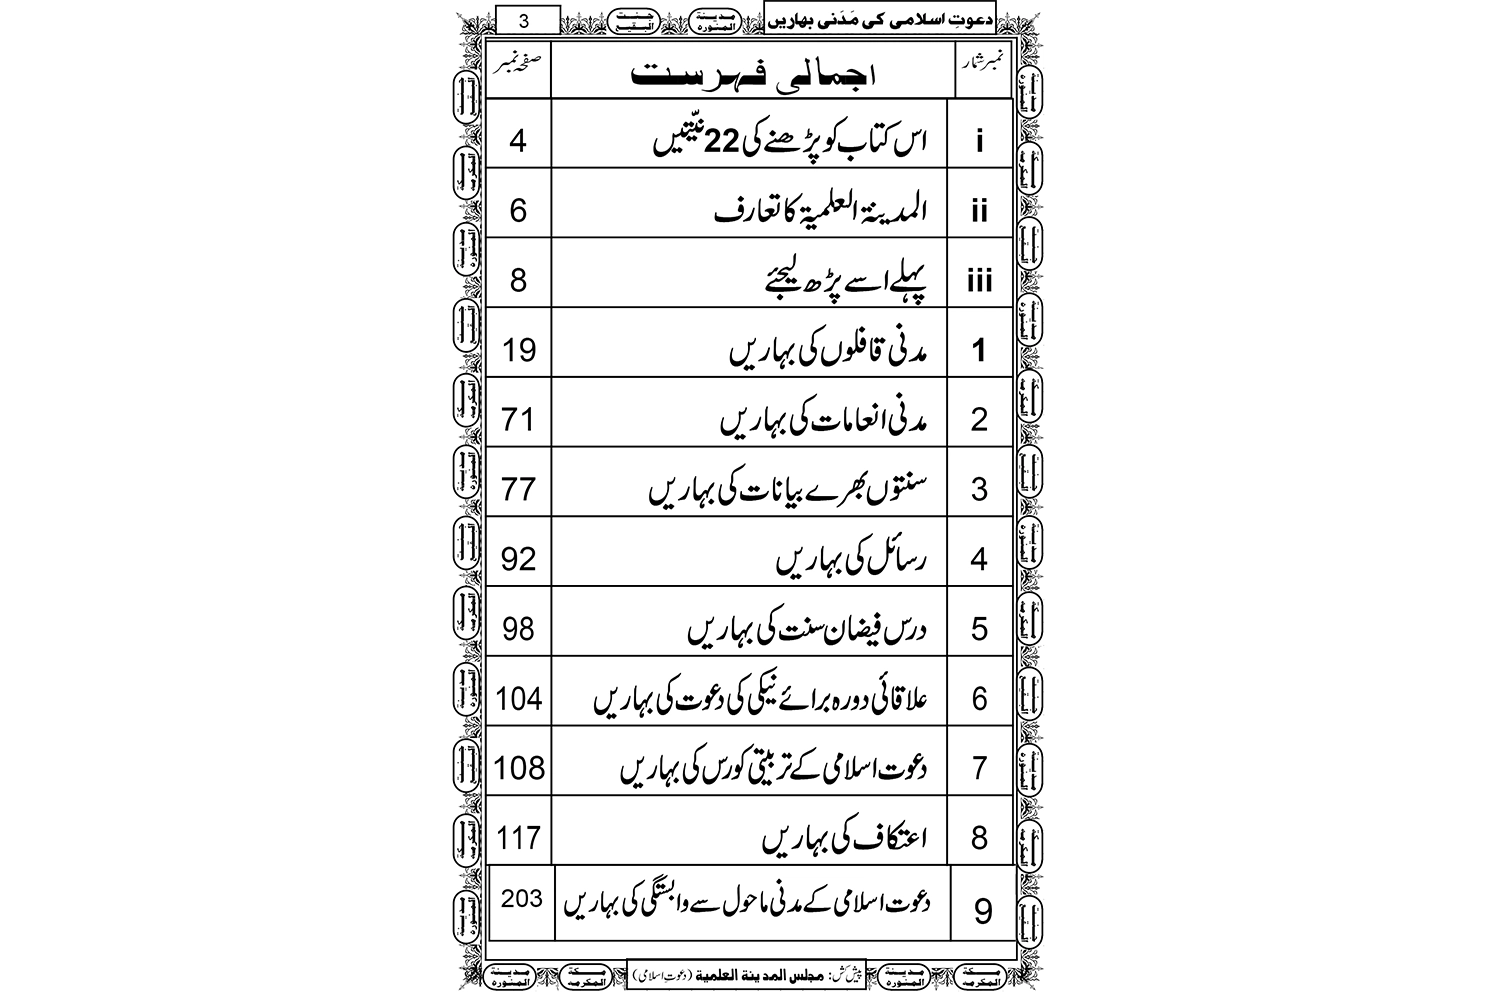 دعوتِ اسلامی کی مَدَنی بہاریں
جنت البقیع
مدینة المنورہ
3
نمبر شمار اجمالی فہرست صفحہ نمبر
i اس کتاب کو پڑھنے کی 22 نیّتیں 4
ii المدینۃ العلمیۃ کا تعارف 6
iii پہلے اسے پڑھ لیجئے 8
1 مدنی قافلوں کی بہاریں 19
2 مدنی انعامات کی بہاریں 71
3 سنتوں بھرے بیانات کی بہاریں 77
4 رسائل کی بہاریں 92
5 درس فیضان سنت کی بہاریں 98
6 علاقائی دورہ برائے نیکی کی دعوت کی بہاریں 104
7 دعوت اسلامی کے تربیتی کورس کی بہاریں 108
8 اعتکاف کی بہاریں 117
9 دعوت اسلامی کے مدنی ماحول سے وابستگی کی بہاریں 203
مكة المكرمه
مدینة المنورہ
پیش کش: مجلس المدینة العلمیة (دعوتِ اسلامی)
مكة المكرمه
مدینة المنورہ